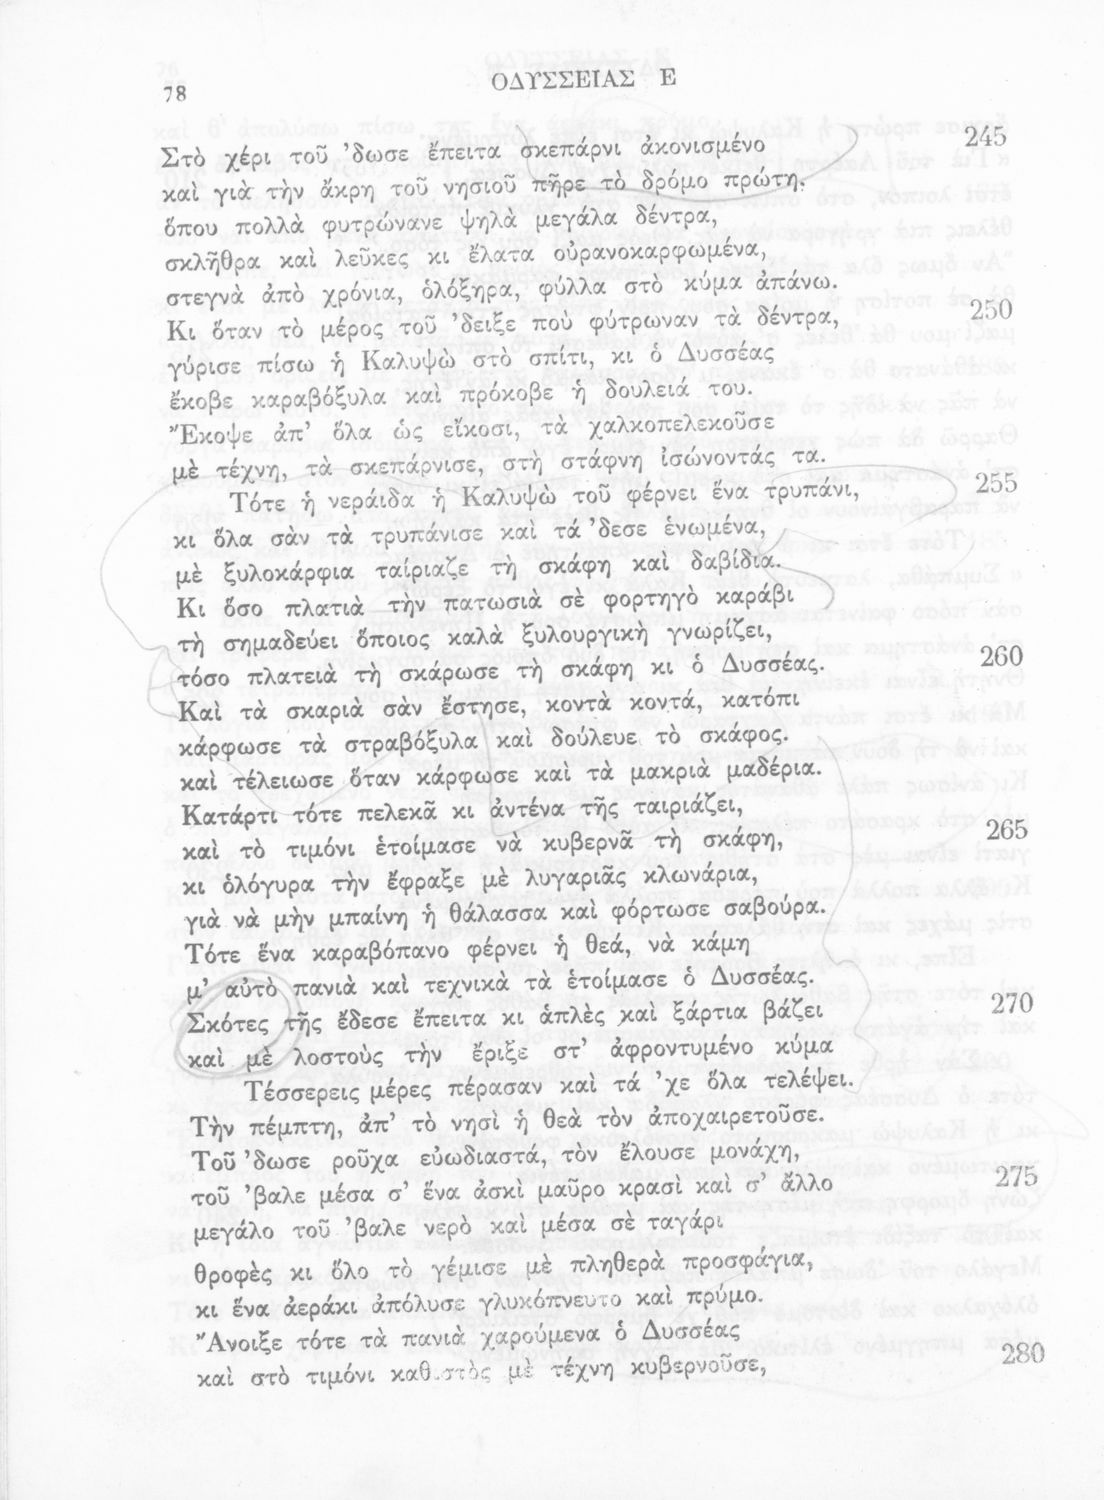 78
ΟΔΥΣΣΕΙΑΣ Ε
Στὸ χέρι τοῦ 'δωσε ἔπειτα σκεπάρνι ἀκονισμένο 245
καὶ γιὰ τὴν ἄκρη τοῦ νησιοῦ πῆρε τὸ δρόμο πρώτη.
ὅπου πολλὰ φυτρώνανε ψηλὰ μεγάλα δέντρα,
σκλῆθρα καὶ λεῦκες κι ἔλατα οὐρανοκαρφωμένα,
στεγνὰ ἀπὸ χρόνια, ὁλόξηρα, φύλλα στὸ κύμα ἀπάνω.
Κι ὅταν τὸ μέρος τοῦ 'δειξε ποὺ φύτρωναν τὰ δέντρα, 250
γύρισε πίσω ἡ Καλυψὼ στὸ σπίτι, κι ὁ Δυσσέας
ἔκοβε καραβόξυλα καὶ πρόκοβε ἡ δουλειά του.
Ἔκοψε ἀπ' ὅλα ὡς εἴκοσι, τὰ χαλκοπελεκοῦσε
μὲ τέχνη, τὰ σκεπάρνισε, στὴ στάφνη ἰσώνοντάς τα.
Τότε ἡ νεράιδα ἡ Καλυψὼ τοῦ φέρνει ἕνα τρυπάνι, 255
κι ὅλα σὰν τὰ τρυπάνισε καὶ τά 'δεσε ἑνωμένα,
μὲ ξυλοκάρφια ταίριαζε τὴ σκάφη καὶ δαβίδια.
Κι ὅσο πλατιὰ τὴν πατωσιὰ σὲ φορτηγὸ καράβι
τὴ σημαδεύει ὅποιος καλὰ ξυλουργικὴ γνωρίζει,
τόσο πλατειὰ τὴ σκάρωσε τὴ σκάφη κι ὁ Δυσσέας. 260
Καὶ τὰ σκαριὰ σὰν ἔστησε, κοντὰ κοντά, κατόπι
κάρφωσε τὰ στραβόξυλα καὶ δούλευε τὸ σκάφος.
καὶ τέλειωσε ὅταν κάρφωσε καὶ τὰ μακριὰ μαδέρια.
Κατάρτι τότε πελεκᾶ κι ἀντένα τῆς ταιριάζει,
καὶ τὸ τιμόνι ἑτοίμασε νὰ κυβερνᾶ τὴ σκάφη, 265
κι ὁλόγυρα τὴν ἔφραξε μὲ λυγαριᾶς κλωνάρια,
γιὰ νὰ μὴν μπαίνη ἡ θάλασσα καὶ φόρτωσε σαβούρα.
Τότε ἕνα καραβόπανο φέρνει ἡ θεά, νὰ κάμη
μ' αὐτὸ πανιὰ καὶ τεχνικὰ τὰ ἑτοίμασε ὁ Δυσσέας.
Σκότες τῆς ἔδεσε ἔπειτα κι ἁπλὲς καὶ ξάρτια βάζει 270
καὶ μὲ λοστοὺς τὴν ἔριξε στ' ἀφροντυμένο κύμα
Τέσσερεις μέρες πέρασαν καὶ τά 'χε ὅλα τελέψει.
Τὴν πέμπτη, ἀπ' τὸ νησὶ ἡ θεὰ τὸν ἀποχαιρετοῦσε.
Τοῦ 'δωσε ροῦχα εὐωδιαστά, τὸν ἔλουσε μονάχη,
τοῦ 'βαλε μέσα σ' ἕνα ἀσκὶ μαῦρο κρασὶ καὶ σ' ἄλλο 275
μεγάλο τοῦ 'βαλε νερὸ καὶ μέσα σὲ ταγάρι
θροφὲς κι ὅλο τὸ γέμισε μὲ πληθερὰ προσφάγια,
κι ἕνα ἀεράκι ἀπόλυσε γλυκόπνευτο καὶ πρύμο.
Ἄνοιξε τότε τὰ πανιὰ χαρούμενα ὁ Δυσσέας
καὶ στὸ τιμόνι καθιστὸς μὲ τέχνη κυβερνοῦσε, 280